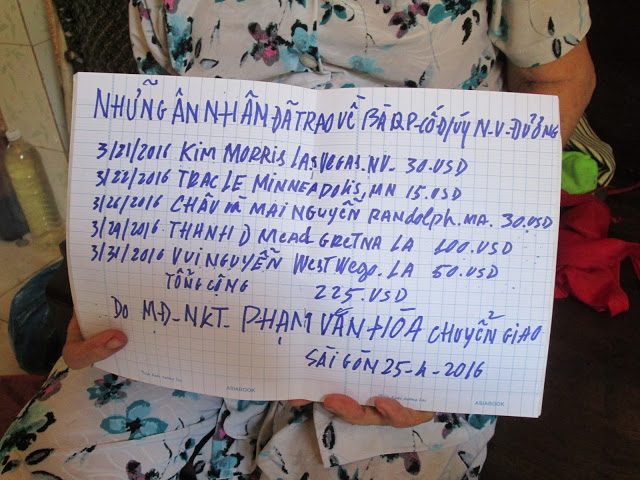 NHỮNG ÂN NHÂN ĐÃ TRAO VỀ BÀ Q.P-CỐ Đ/ÚY N.V. ĐƯỞNG
3/21/2016 KIM MORRIS LAS VEGAS. NV- 30.USD
3/22/2016 TRAC LE MINNEAPOLIS, MN 15.USD
3/26/2016 CHÂU và MAI NGUYỄN RANDOLPH. MA. 30.USD
3/29/2016 THANH D Mead GRETNA LA 100.USD
3/31/2016 VUI NGUYỄN West Wego. LA 50.USD
TỔNG CỘNG 225.USD
Do MĐ-NKT- PHẠM VĂN HÓA CHUYỂN GIAO
SÀI GÒN 25-4-2016
ASIABOOK
ASIABOOK